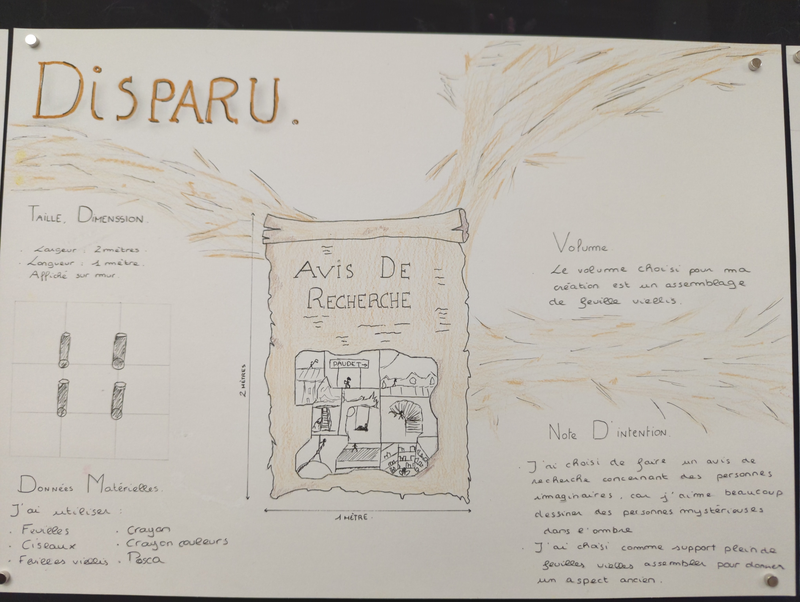 DiSPARU.
TAILLE, DIMENSSION.
. Largeur : 2 mètres.
. Longueur : 1 mètre.
Affiché sur mur.
2 MÈTRES
AVIS DE
RECHERCHE
DAUDET
1 MÈTRE.
DONNÉES MATÉRIELLES.
J'ai utiliser :
. Feuilles
. Ciseaux
. Feuilles vieillis
. Crayon
. Crayon couleurs
. Posca
Volume.
Le volume choisi pour ma
création est un assemblage
de feuille vieillis.
NOTE D'INTENTION.
. J'ai choisi de faire un avis de
recherche concernant des personnes
imaginaires, car j'aime beaucoup
dessiner des personnes mystérieuses
dans l'ombre
. J'ai choisi comme support plein de
feuilles vieilles assembler pour donner
un aspect ancien.